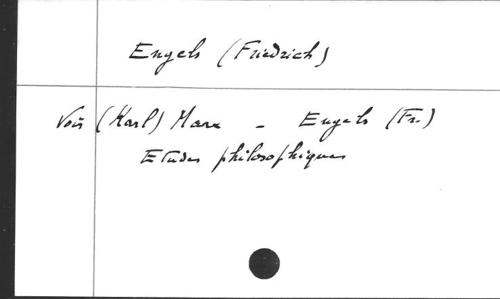 Engels (Friedrich)
Voir (Karl) Marx - Engels (Fr.)
Etudes philosophiques